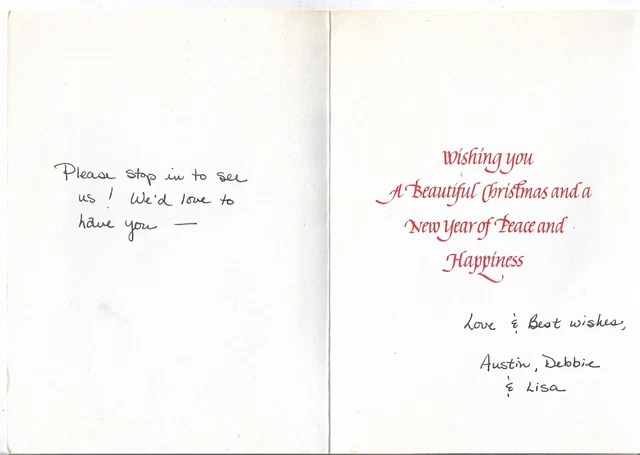 Please stop in to see
us! We'd love to
have you —
Wishing you
A Beautiful Christmas and a
New Year of Peace and
Happiness
Love & Best wishes,
Austin, Debbie
& Lisa